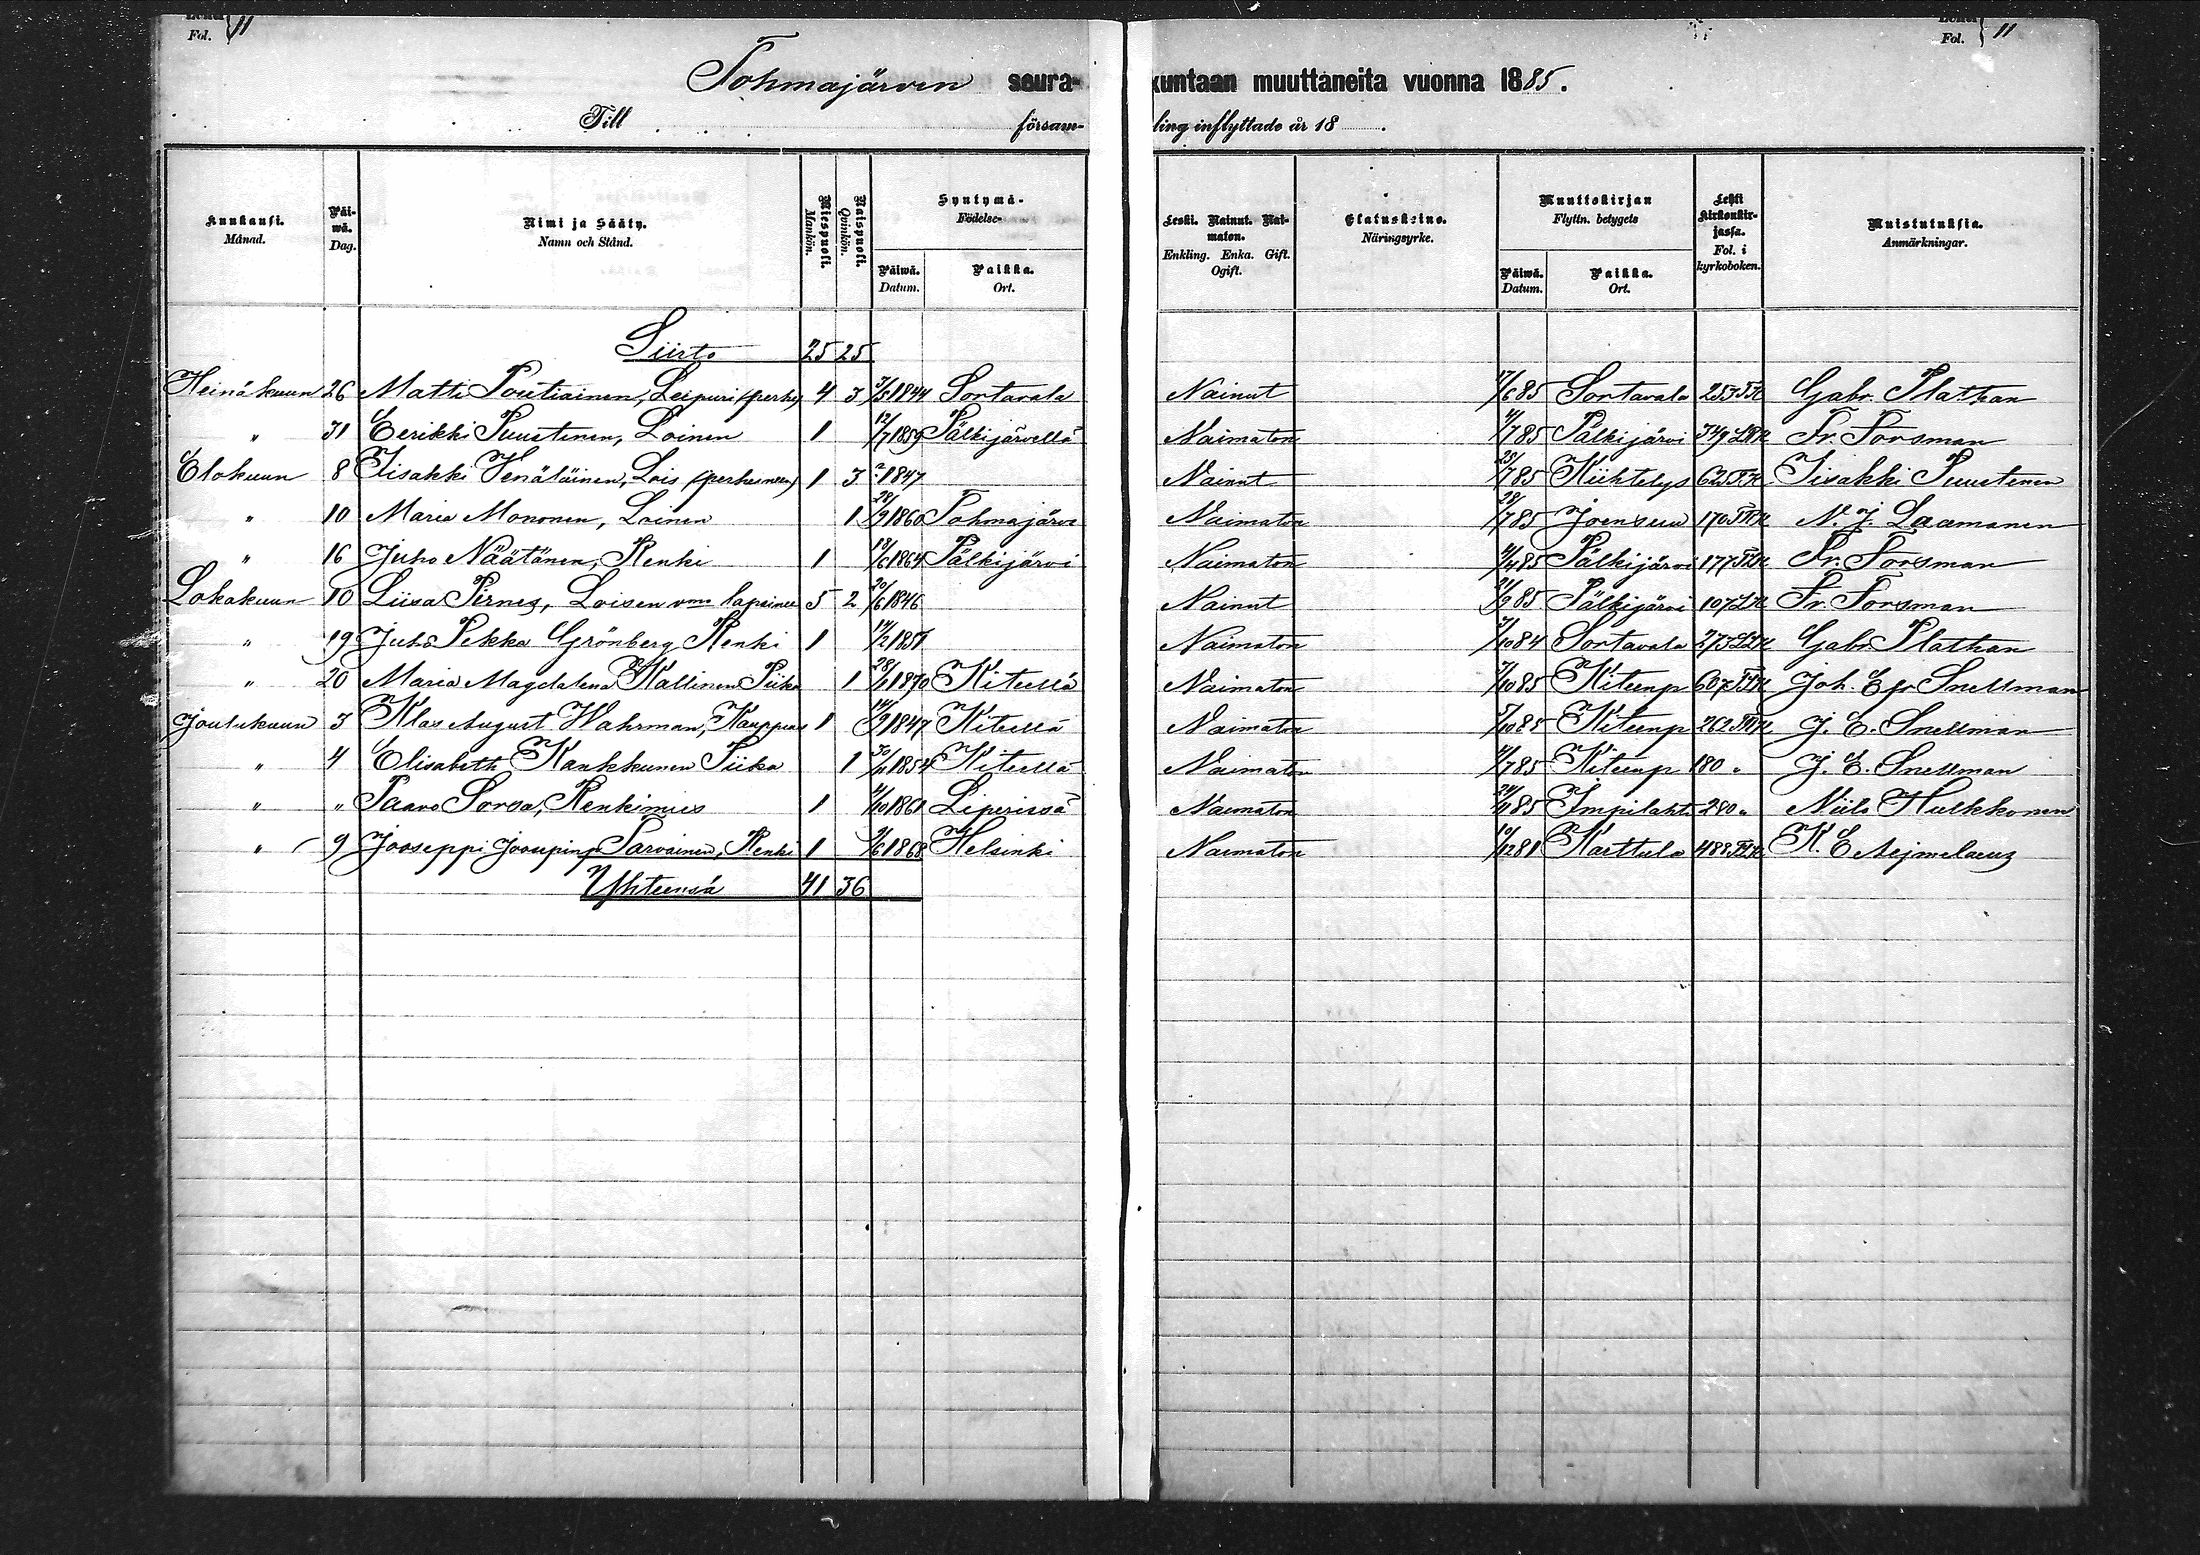 Fol. 11
Fol. 11
Tohmajärven seura-kuntaan muuttaneita vuonna 1885.
Till församling inflyttade år 18
Kuukausi. Månad.
Päiwä. Dag.
Nimi ja Sääty. Namn och Stånd.
Miespuoli. Mankön.
Naispuoli. Qvinkön.
Syntymä- Födelse-
Päiwä. Datum.
Paikka. Ort.
Leski. Nainut. Naimaton. Enkling. Enka. Gift. Ogift.
Elatuskeino. Näringsyrke.
Muuttokirjan Flyttn. betygets
Päiwä. Datum.
Paikka. Ort.
Lehti Kirkonkirjassa. Fol. i kyrkoboken.
Muistutuksia. Anmärkningar.
Siirto 25 25
Heinäkuun 26 Matti Poutiainen, Leipuri (perhe) 4 3 3/5 1844 Sortavala Nainut 17/6 85 Sortavala 253 Gabr. Plathan
" 31 Eerikki Puustinen, Loinen 1 12/7 1859 Pälkijärvellä Naimaton 11/7 85 Pälkijärvi 349 Fr. Forsman
Elokuun 8 Iisakki Venäläinen, Lois (perheineen) 1 3 1847 Nainut 25/7 85 Kiihtelys 625 Iisakki Puustinen
" 10 Maria Mononen, Loinen 1 28/9 1860 Tohmajärvi Naimaton 28/7 85 Joensuu 170 N. J. Laamanen
" 16 Juho Näätänen, Renki 1 18/6 1864 Pälkijärvi Naimaton 85 Pälkijärvi 177 Fr. Forsman
Lokakuun 10 Liisa Pirnes, Loisen vmo lapsinee 5 2 20/6 1846 Nainut 21/9 85 Pälkijärvi 107 Fr. Forsman
" 19 Juho Pekka Grönberg Renki 1 14/2 1851 Naimaton 84 Sortavala 273 Gabr. Plathan
" 20 Maria Magdalena Kallinen Piika 1 28/11 1870 Kiteellä Naimaton 7/10 85 Kiteenp 607 Joh. Ef. Snellman
Joulukuun 3 Klas August Wahrman, Kauppias 1 14/9 1847 Kiteellä Naimaton 7/10 85 Kiteenp 262 J. E. Snellman
" 4 Elisabeth Kankkunen Piika 1 30/11 1854 Kiteellä Naimaton 85 Kiteenp 180 " J. E. Snellman
" " Paavo Sorsa, Renkimies 1 1861 Liperissä Naimaton 24/11 85 Impilahti 280 " Niilo Hulkkonen
" 9 Jooseppi Joosepinp Parvainen, Renki 1 1868 Helsinki Naimaton 10/12 81 Karttula 488 K. E. Aejmelaeus
Yhteensä 41 36